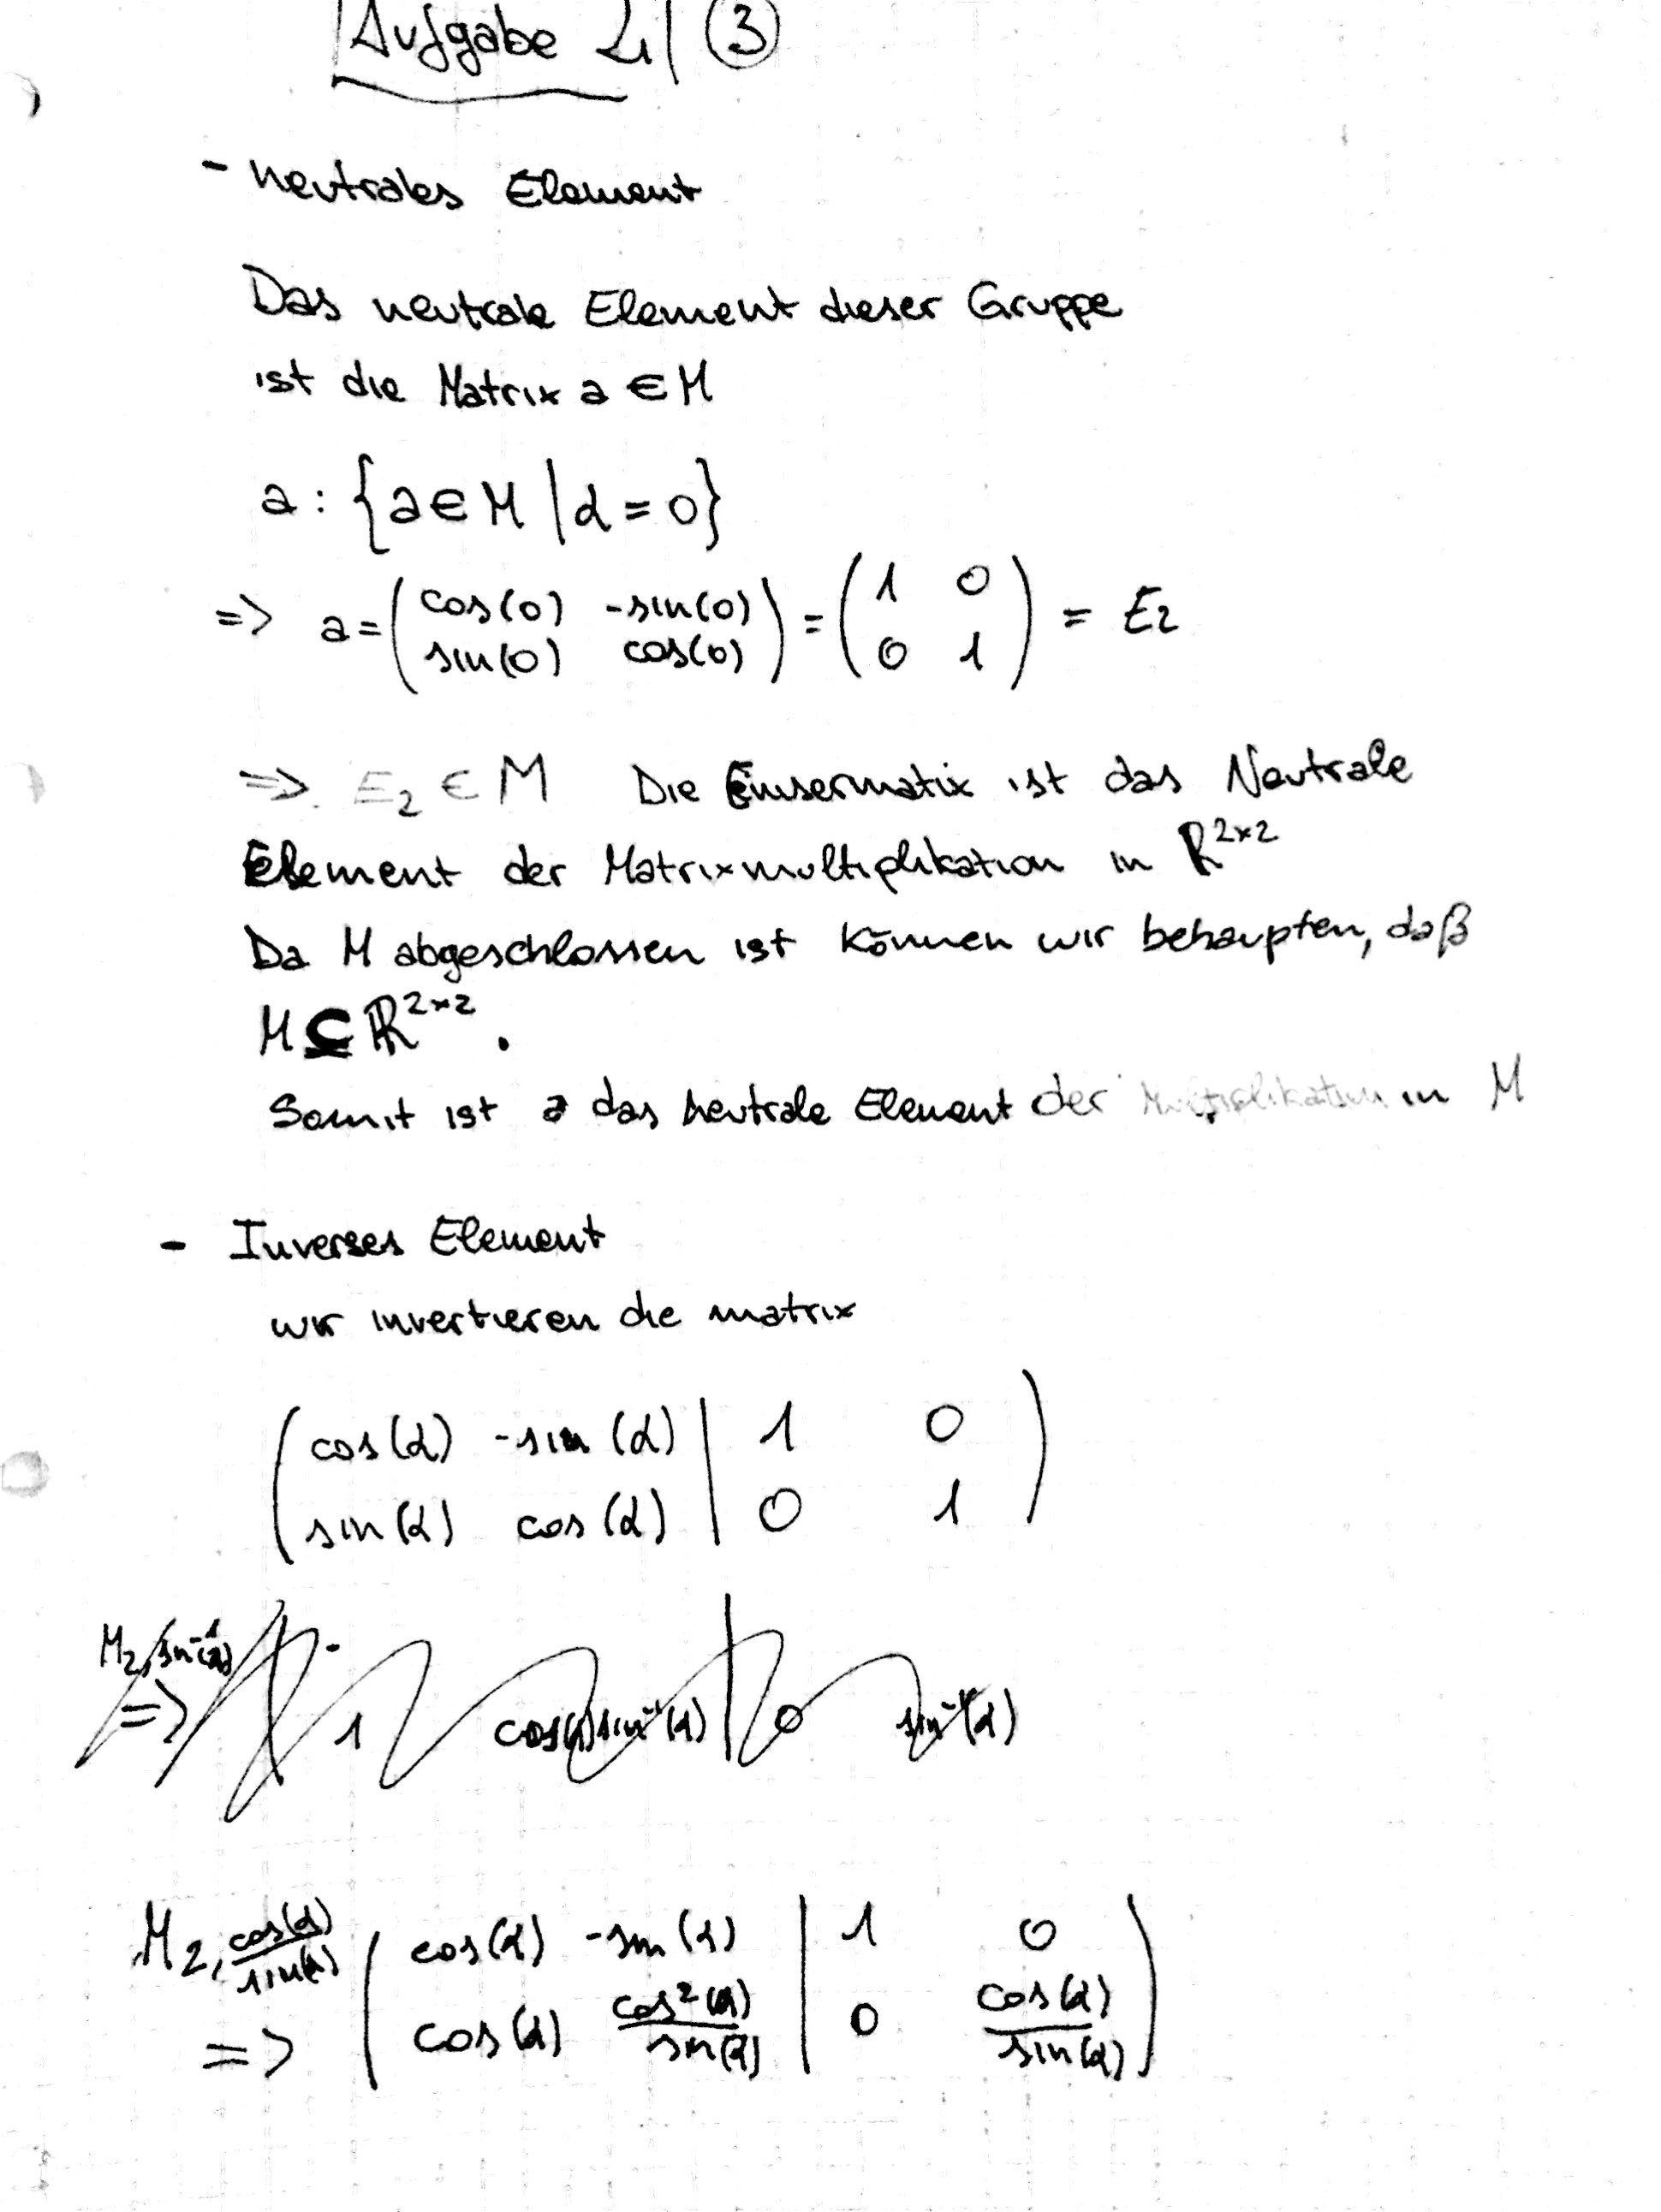 Aufgabe 2| ③
- Neutrales Element
Das neutrale Element dieser Gruppe
ist die Matrix a ∈ M
a : {a ∈ M | α = 0}
=> a = ( cos(0) -sin(0) ; sin(0) cos(0) ) = ( 1 0 ; 0 1 ) = E₂
=> E₂ ∈ M Die Einsermatix ist das Neutrale
Element der Matrixmultiplikation in ℝ²ˣ²
Da M abgeschlossen ist können wir behaupten, daß
M ⊆ ℝ²ˣ².
Somit ist a das neutrale Element der Multiplikation in M
- Inverses Element
wir invertieren die matrix
( cos(α) -sin(α) | 1 0
sin(α) cos(α) | 0 1 )
M₂,sin⁻¹(α)
=> 1 cos(α)sin⁻¹(α) | 0 sin⁻¹(α)
M₂,cos(α)/sin(α) ( cos(α) -sin(α) | 1 0
=> cos(α) cos²(α)/sin(α) | 0 cos(α)/sin(α) )